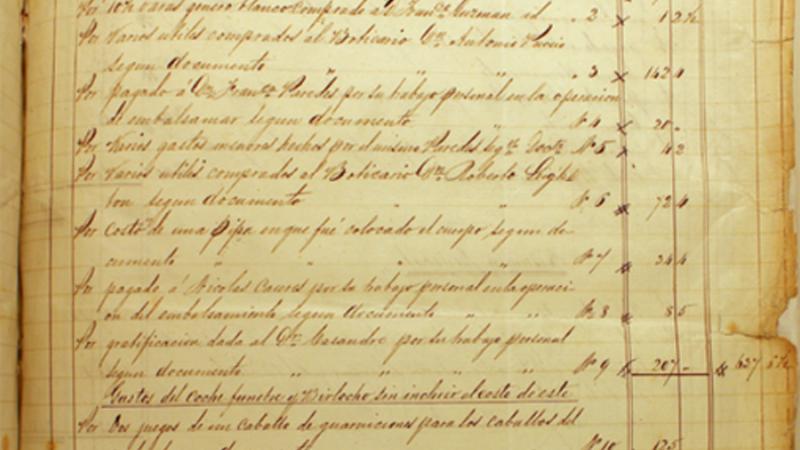 Por 10½ varas genero blanco comprado a D. Franco. Guzman id. " 2 × 12½
Por varios utiles comprados al Boticario Dn. Antonio
segun documento " " " " 3 × 142 4
Por pagado á Dn. Franco. Paredes por su trabajo personal en la operacion
de embalsamar segun documento " No 4 × 20 "
Por varios gastos menores hechos por el mismo Paredes sgn. Docto. No 5 × 42
Por varios utiles comprados al Boticario Dn. Roberto Leigh
ton segun documento " " No 6 × 72 4
Por costo de una pipa en que fué colocado el cuerpo segun do
cumento " " " " No 7 × 34 4
Por pagado á Nicolas por su trabajo personal en la operaci
on del embalsamiento segun documento " " No 8 × 85
Por gratificacion dada al Dr. por su trabajo personal
segun documento " " " " No 9 × 207 " × 637
Gastos del coche funebre y Birlocho sin incluir el costo de este
Por dos juegos de un caballo de guarniciones para los caballos del
No 10 125